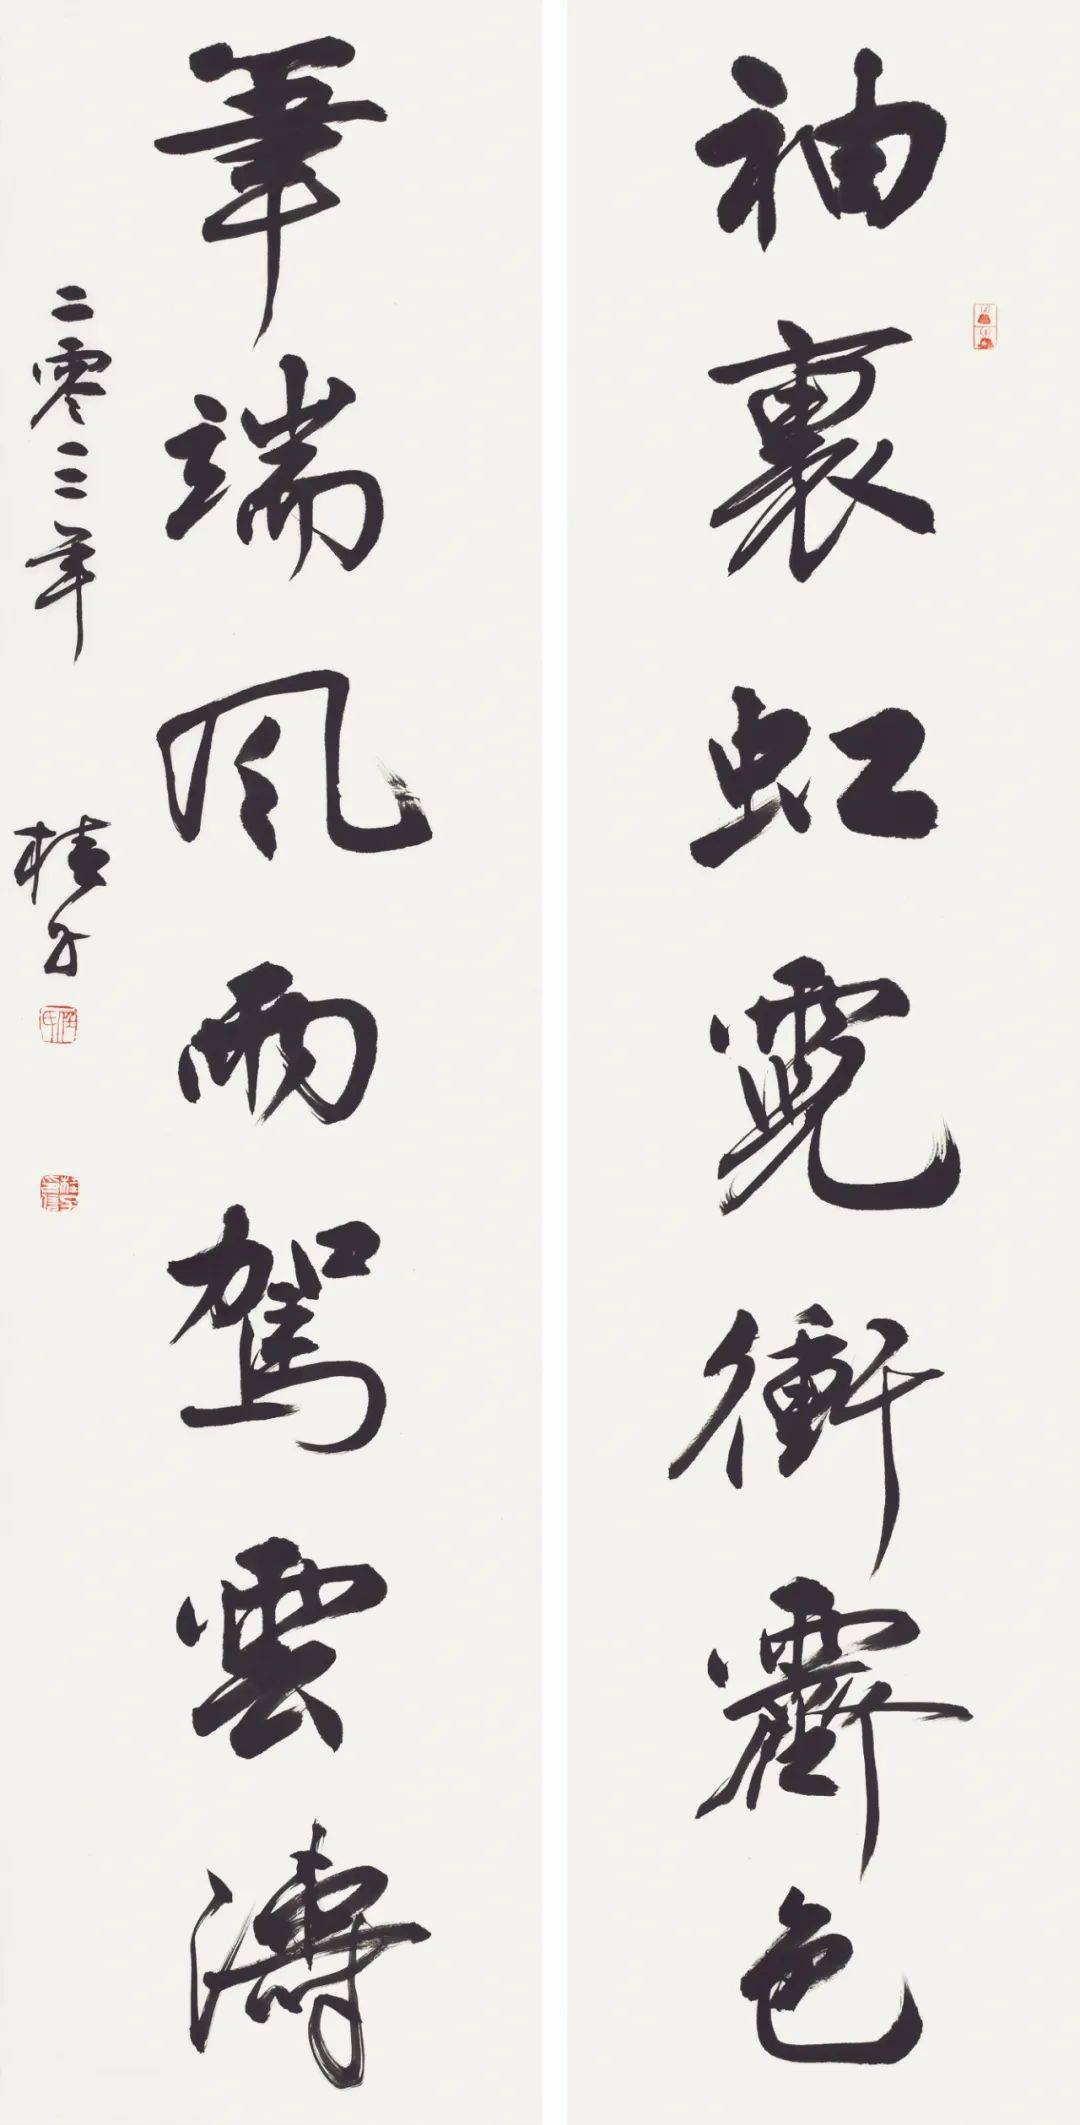 袖裏虹霓衝霽色
筆端風雨駕雲濤
二零二三年